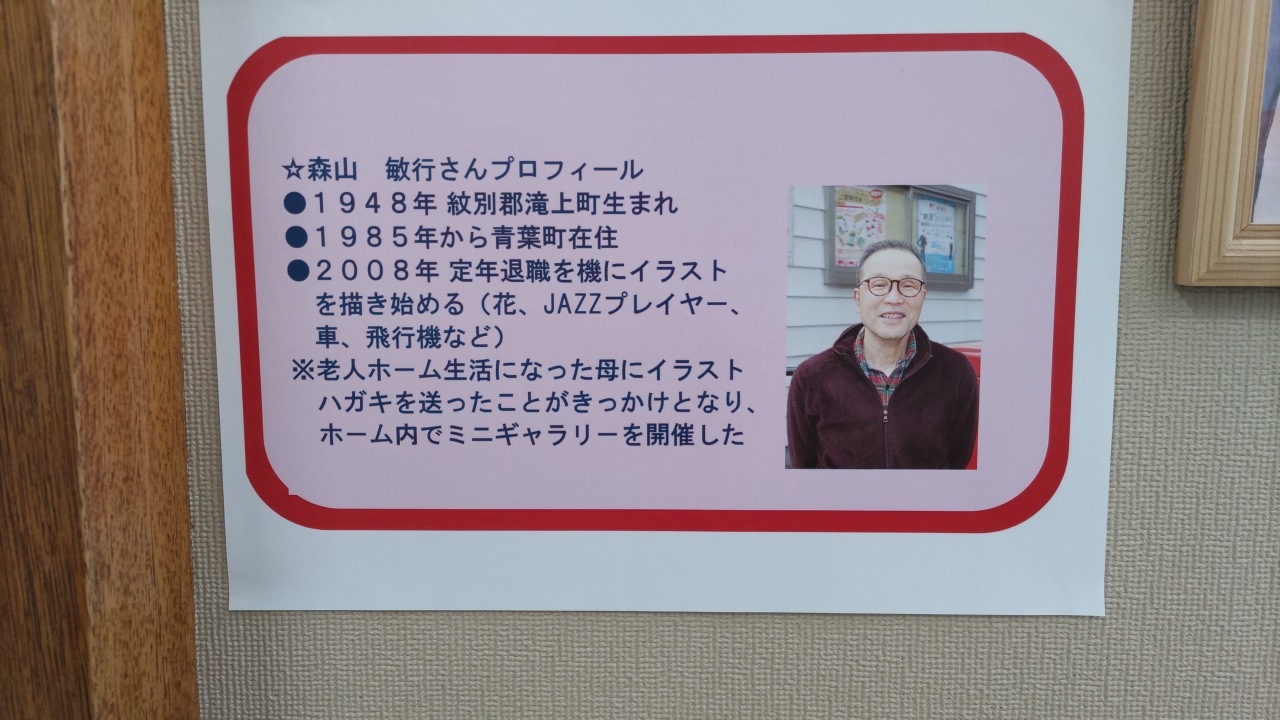 ☆森山　敏行さんプロフィール
●１９４８年 紋別郡滝上町生まれ
●１９８５年から青葉町在住
●２００８年 定年退職を機にイラスト
を描き始める（花、JAZZプレイヤー、
車、飛行機など）
※老人ホーム生活になった母にイラスト
ハガキを送ったことがきっかけとなり、
ホーム内でミニギャラリーを開催した